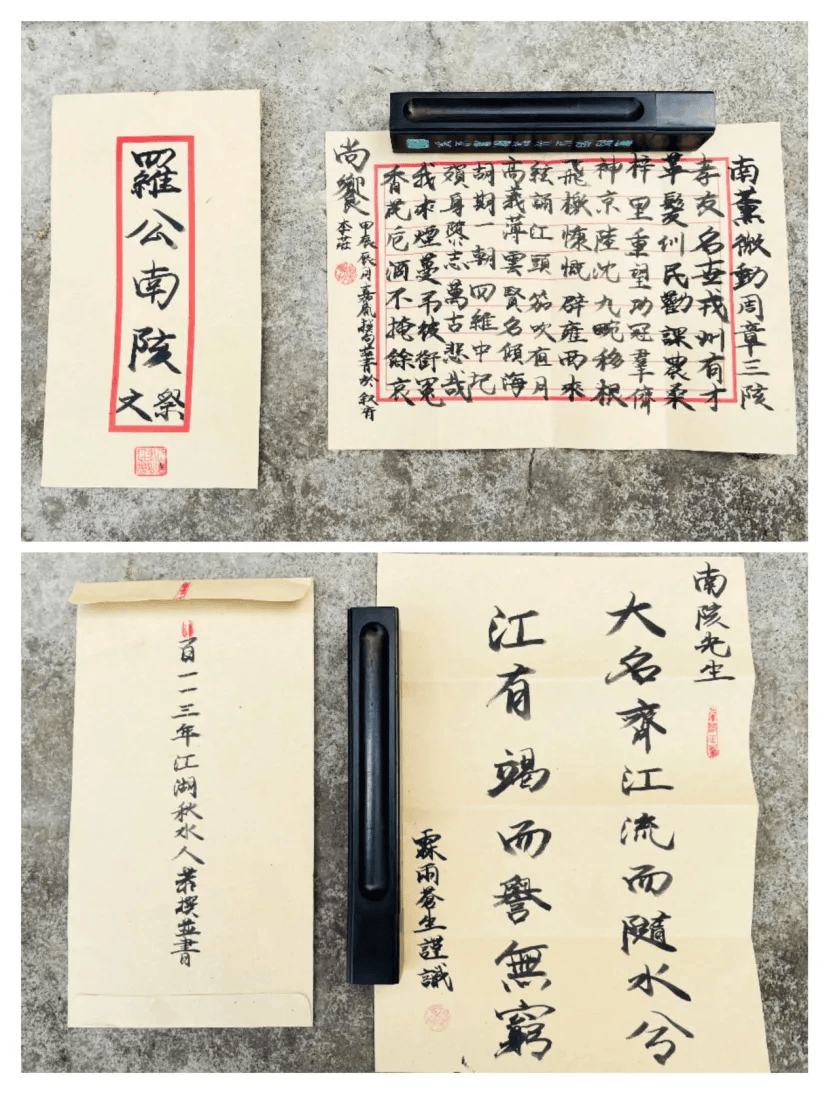 羅公南陔
祭文
南薰微動周章三陔
孝友名世戎州有才
草髮訓民勸課農桑
梓里重望功冠羣儕
神京陸沈九畹移根
飛檄慷慨辟雍西來
絃誦江頭笳吹有月
高義薄雲賢名傾海
胡期一朝四維中圮
身志萬古悲哉
我來煙蔓弔彼銜冤
香花卮酒不掩餘哀
尚饗
甲辰辰月嘉胤撰句並書於敘府
李莊
百一一三年江湖秋水人恭撰並書
南陔先生
大名齊江流而隨水兮
江有竭而譽無窮
霖雨蒼生謹識